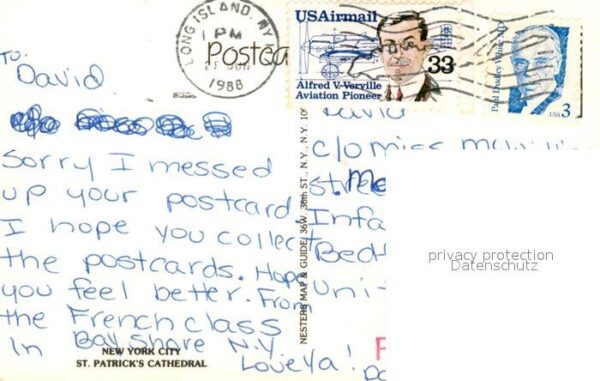 LONG ISLAND, NY
1 PM
JUN
1988
Postca
USAirmail
33
Alfred V. Verville
Aviation Pioneer
Paul Dudley White MD
USA 3
To:
David
Sorry I messed
up your postcard.
I hope you collect
the postcards. Hope
you feel better. From
the French class
In Bay Shore N.Y.
Love Ya!
NEW YORK CITY
ST. PATRICK'S CATHEDRAL
NESTER'S MAP & GUIDE, 36W. 36th ST., N.Y., N.Y. 10
David
c/o miss
street
Infa
Bed
Unit
privacy protection
Datenschutz